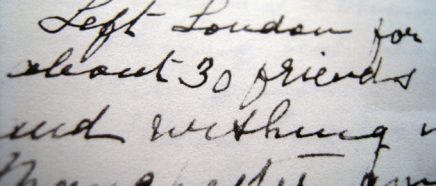 Left London for
about 30 friends
and wishing
Manchester